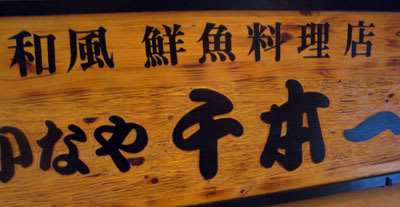 和風 鮮魚料理店
かなや 千本